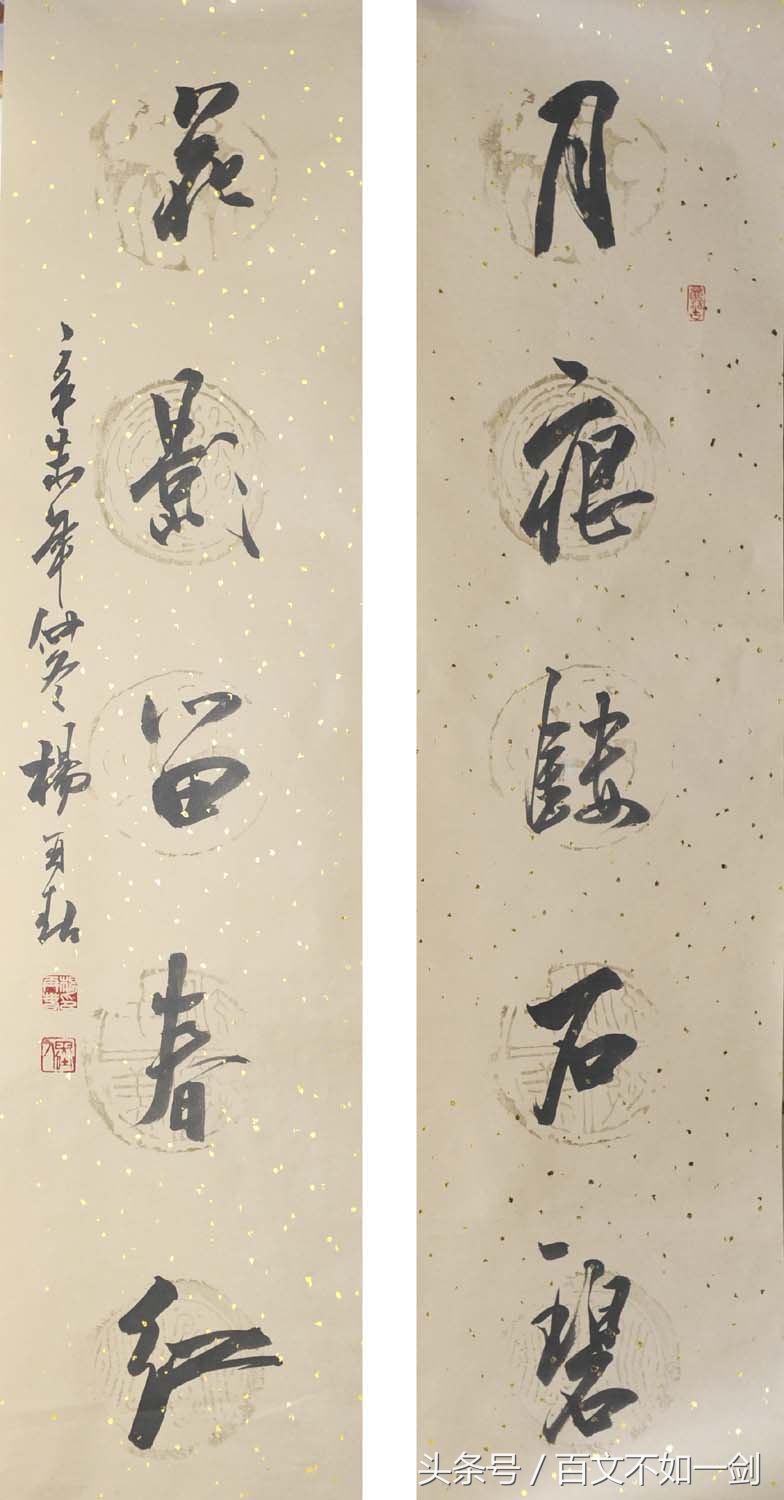 月痕鏤石碧
花影留春红
辛未年仲冬楊再春
头条号 / 百文不如一剑